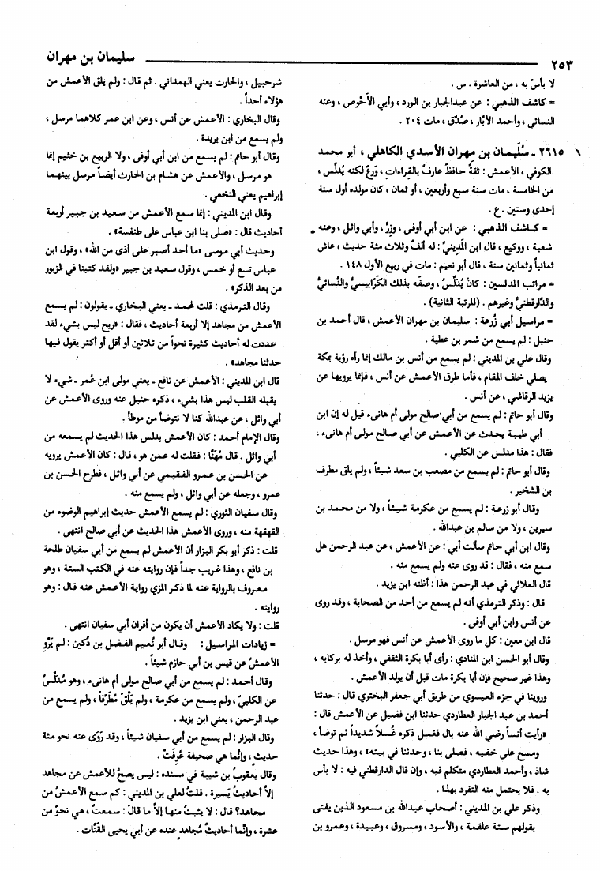 ٢٥٣
سليمان بن مهران
لا بأس به ، من العاشرة . س .
= كاشف الذهبي : عن عبدالجبار بن الورد ، وأبي الأحوص ، وعنه
النسائي ، وأحمد الأبّار ، صَدُق ، مات ٢٠٤ .
٢٦١٥ ـ سُلَيمان بن مهران الأسدي الكاهلي ، أبو محمد
الكوفي ، الأعمش : ثقةٌ حافظ عارفٌ بالقراءات ، وَرِعٌ لكنه يُدلِّس ،
من الخامسة ، مات سنة سبع وأربعين ، أو ثمان ، كان مولده أول سنة
إحدى وستين . ع .
= كاشف الذهبي : عن ابن أبي أوفى ، وزِرّ ، وأبي وائل ، وعنه
شعبة ، ووكيع ، قال ابن المَدِيني : له ألفٌ وثلاث مئة حديث ، عاش
ثمانياً وثمانين سنة ، قال أبو نعيم : مات في ربيع الأول ١٤٨ .
= مراتب المدلسين : كان يُدَلِّسُ ، وصفَه بذلك الكَرَابيسيُّ والنَّسائيُّ
والدَّارقطنيُّ وغيرهم . (المرتبة الثانية) .
= مراسيل أبي زُرعة : سليمان بن مهران الأعمش ، قال أحمد بن
حنبل : لم يسمع من شمر بن عطية .
وقال علي بن المديني : لم يسمع من أنس بن مالك إنما رآه رؤية بمكة
يصلي خلف المقام ، فأما طرق الأعمش عن أنس ، فإنما يرويها عن
يزيد الرقاشي ، عن أنس .
وقال أبو حاتم : لم يسمع من أبي صالح مولى أم هانىء قيل له إن ابن
أبي طيبة يحدث عن الأعمش عن أبي صالح مولى أم هانىء ،
فقال : هذا مدلس عن الكلبي .
وقال أبو حاتم : لم يسمع من مصعب بن سعد شيئاً ، ولم يلق مطرف
بن الشخير .
وقال أبو زرعة : لم يسمع من عكرمة شيئاً ، ولا من محمد بن
سيرين ، ولا من سالم بن عبدالله .
وقال ابن أبي حاتم سألت أبي : عن الأعمش ، عن عبد الرحمن هل
سمع منه ، فقال : قد روى عنه ولم يسمع منه .
قال العلائي في عبد الرحمن هذا : أظنه ابن يزيد .
قال : وذكر الترمذي أنه لم يسمع من أحد من الصحابة ، وقد روى
عن أنس وابن أبي أوفى .
قال ابن معين : كل ما روى الأعمش عن أنس فهو مرسل .
وقال أبو الحسن ابن المنادي : رأى أبا بكرة الثقفي ، وأخذ له بركابه ،
وهذا غير صحيح فإن أبا بكرة مات قبل أن يولد الأعمش .
وروينا في جزء العيسوي من طريق أبي جعفر البختري قال : حدثنا
أحمد بن عبد الجبار العطاردي حدثنا ابن فضيل عن الأعمش قال :
«رأيت أنساً رضي الله عنه بال فغسل ذكره غسلاً شديداً ثم توضأ ،
ومسح على خفيه ، فصلى بنا ، وحدثنا في بيته» ، وهذا حديث
شاذ ، وأحمد العطاردي متكلم فيه ، وإن قال الدارقطني فيه : لا بأس
به . فلا يحتمل منه التفرد بهذا .
وذكر علي بن المديني : أصحاب عبدالله بن مسعود الذين يفتى
بقولهم ستة علقمة ، والأسود ، ومسروق ، وعبيدة ، وعمرو بن
شرحبيل ، والحارث يعني الهمداني . ثم قال : ولم يلق الأعمش من
هؤلاء أحداً .
وقال البخاري : الأعمش عن أنس ، وعن ابن عمر كلاهما مرسل ،
ولم يسمع من ابن بريدة .
وقال أبو حاتم : لم يسمع من ابن أبي أوفى ، ولا الربيع بن خثيم إنما
هو مرسل ، والأعمش عن هشام بن الحارث أيضاً مرسل بينهما
إبراهيم يعني النخعي .
وقال ابن المديني : إنما سمع الأعمش من سعيد بن جبير أربعة
أحاديث قال : «صلى بنا ابن عباس على طنفسة» .
وحديث أبي موسى «ما أحد أصبر على أذى من الله» ، وقول ابن
عباس تسع أو خمس ، وقول سعيد بن جبير «ولقد كتبنا في الزبور
من بعد الذكر» .
وقال الترمذي : قلت لمحمد ـ يعني البخاري ـ يقولون : لم يسمع
الأعمش من مجاهد إلا أربعة أحاديث ، فقال : «ريح ليس بشيء لقد
عددت له أحاديث كثيرة نحواً من ثلاثين أو أقل أو أكثر يقول فيها
حدثنا مجاهد» .
قال ابن المديني : الأعمش عن نافع ـ يعني مولى ابن عُمر ـ شيء لا
يقبله القلب ليس هذا بشيء ، ذكره حنبل عنه وروى الأعمش عن
أبي وائل ، عن عبدالله كنا لا نتوضأ من موطأ .
وقال الإمام أحمد : كان الأعمش يدلس هذا الحديث لم يسمعه من
أبي وائل . قال مُهَنَّا : فقلت له عمن هو ، قال : كان الأعمش يرويه
عن الحسن بن عمرو الفقيمي عن أبي وائل ، فطرح الحسن بن
عمرو ، وجعله عن أبي وائل ، ولم يسمع منه .
وقال سفيان الثوري : لم يسمع الأعمش حديث إبراهيم الوضوء من
القهقهة منه ، وروى الأعمش هذا الحديث عن أبي صالح انتهى .
قلت : ذكر أبو بكر البزار أن الأعمش لم يسمع من أبي سفيان طلحة
بن نافع ، وهذا غريب جداً فإن روايته عنه في الكتب الستة ، وهو
معروف بالرواية عنه لما ذكر المزي رواية الأعمش عنه قال : وهو
روايته .
قلت : ولا يكاد الأعمش أن يكون من أقران أبي سفيان انتهى .
= زيادات المراسيل : وقال أبو نُعيم الفضل بن دُكين : لم يَرْوِ
الأعمشُ عن قيس بن أبي حازم شيئاً .
وقال أحمد : لم يسمع من أبي صالح مولى أم هانىء ، وهو مُدَلَّسٌ
عن الكلبيّ ، ولم يسمع من عكرمة ، ولم يَلْقَ مُطَرِّفاً ، ولم يسمع من
عبد الرحمن ، يعني ابن يزيد .
وقال البزار : لم يسمع من أبي سفيان شيئاً ، وقد رَوَى عنه نحو مئة
حديث ، وإنَّما هي صحيفة عُرِفَت .
وقال يعقوب بن شيبة في مسنده : ليس يصحُّ للأعمش عن مجاهد
إلا أحاديثُ يَسيرة . قلتُ لعلي بن المديني : كم سمع الأعمشُ من
مجاهد؟ قال : لا يثبتُ منها إلاَّ ما قال : سمعتُ ، هي نحوٌ من
عشرة ، وإنَّما أحاديثُ مُجاهدٍ عنده عن أبي يحيى القَتَّات .